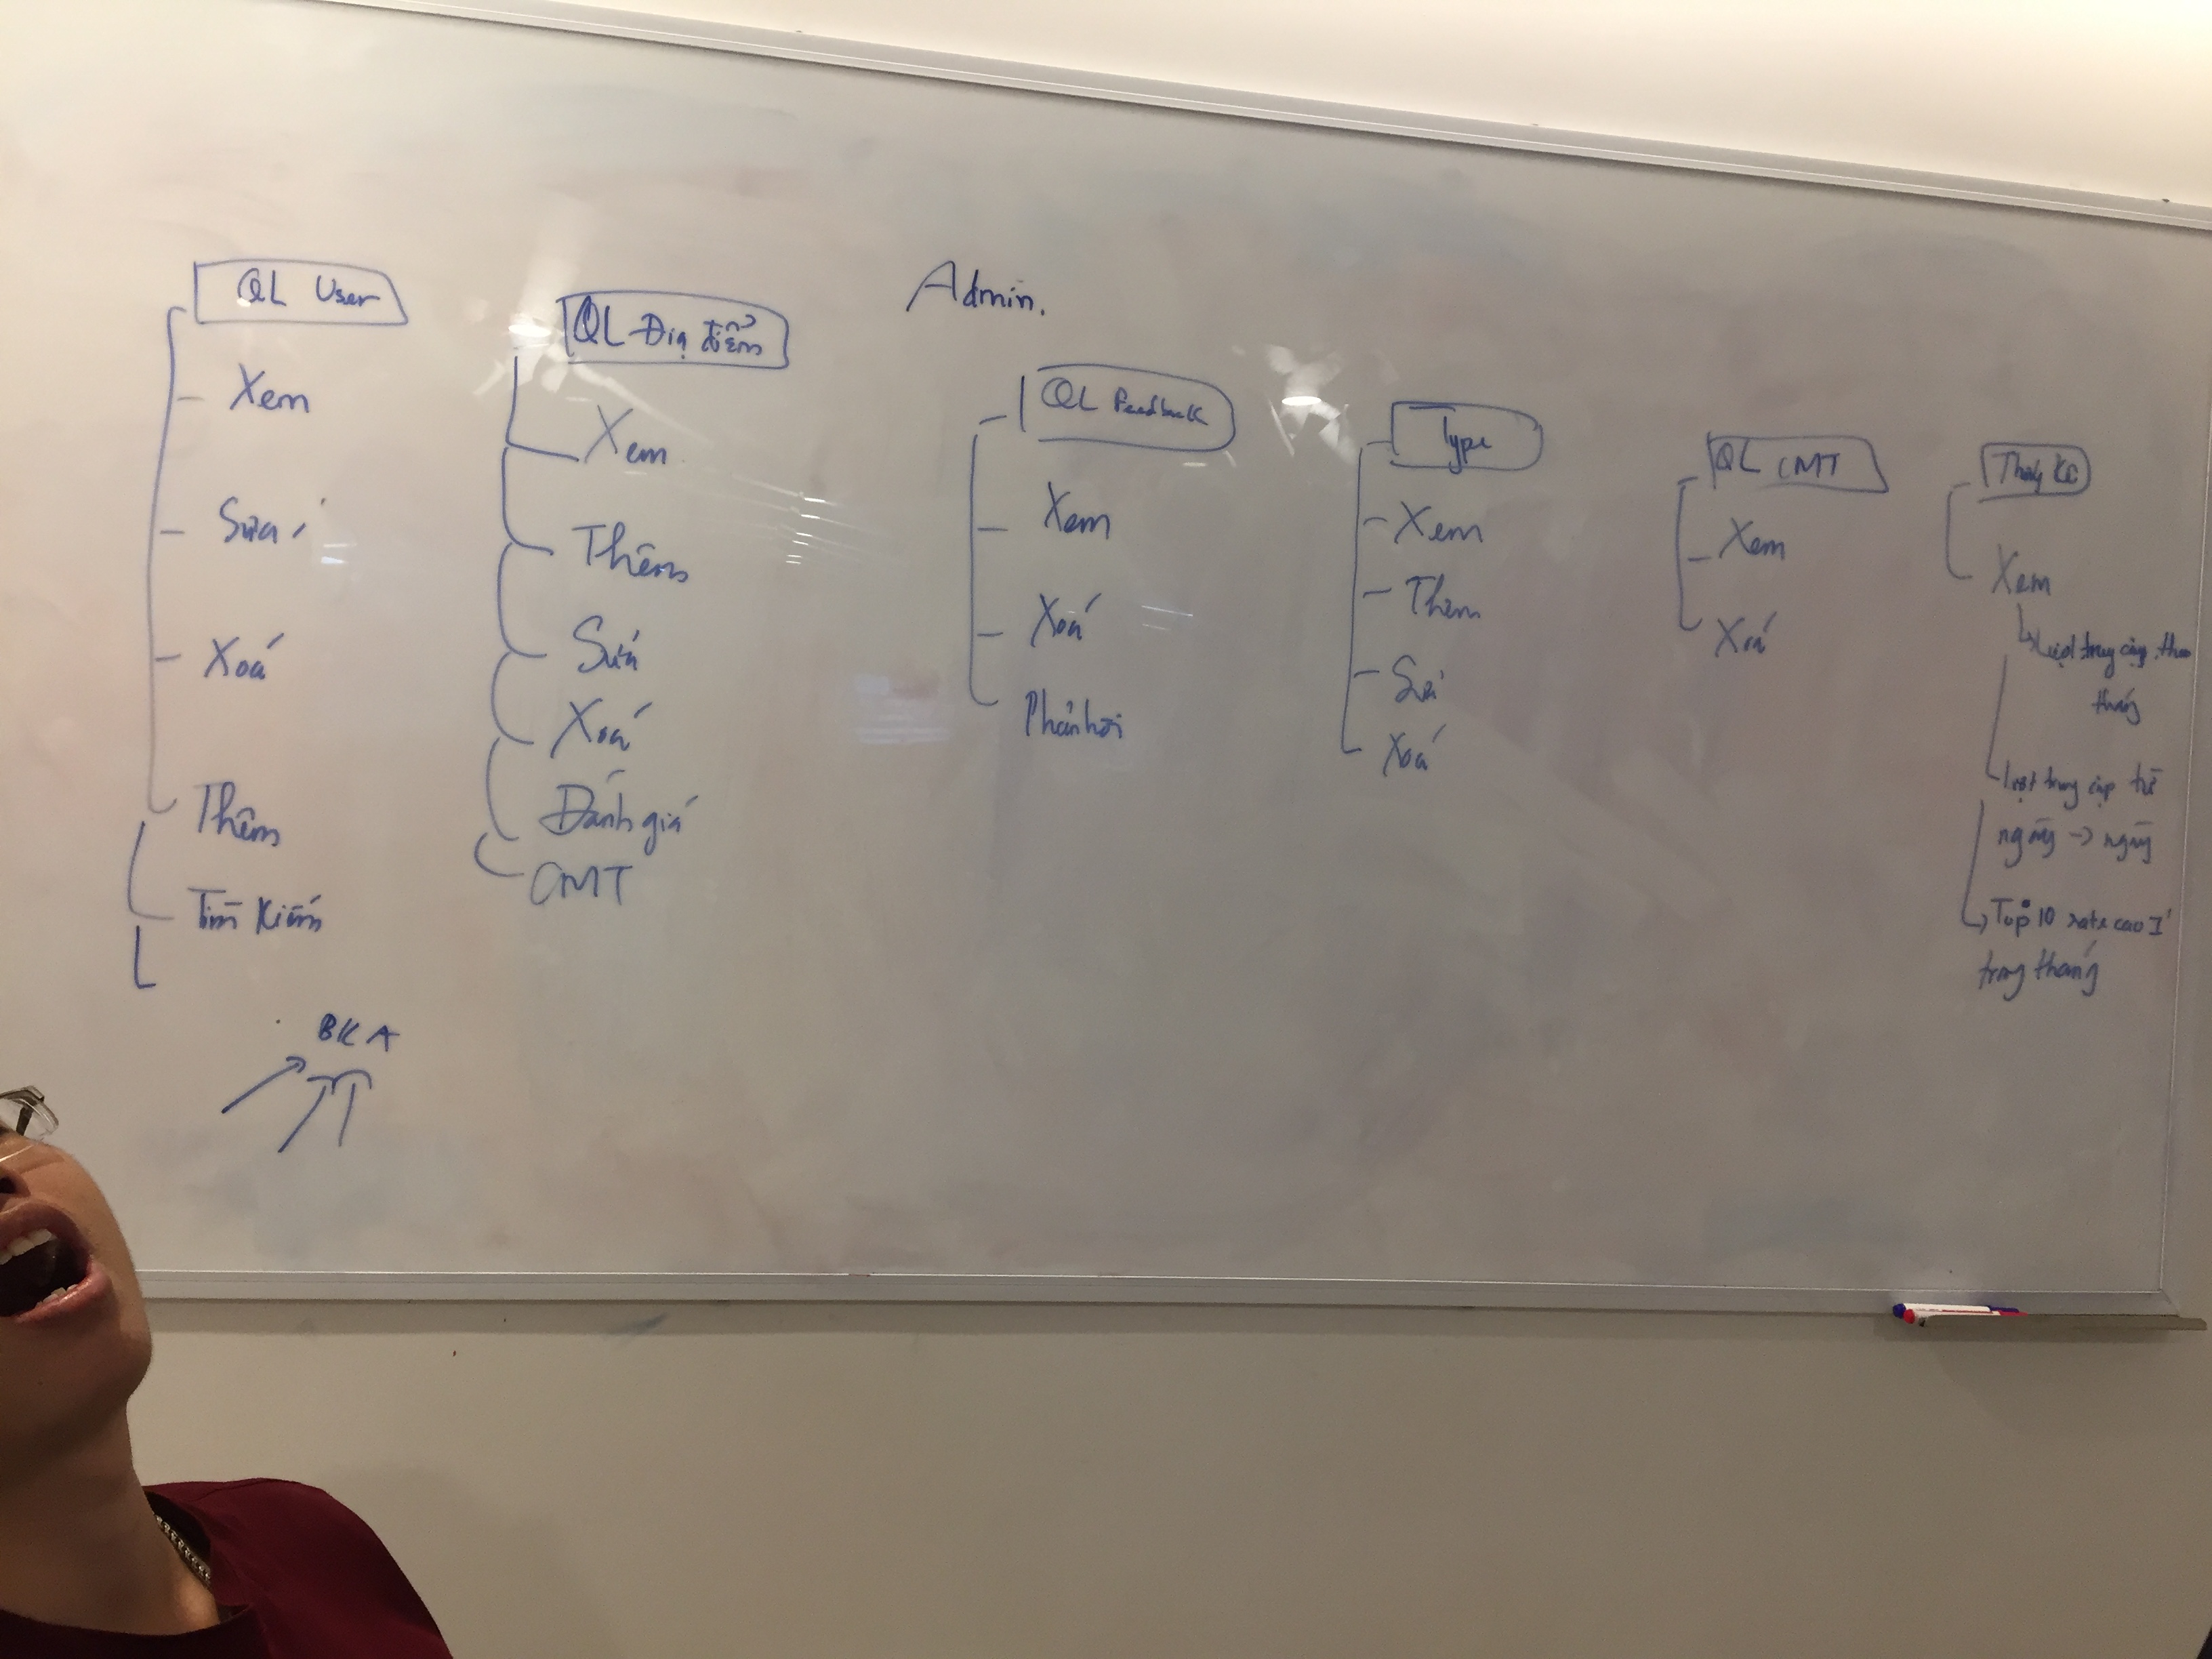 Admin.
QL User
Xem
Sửa
Xoá
Thêm
Tìm Kiếm
BKA
QL Địa điểm
Xem
Thêm
Sửa
Xoá
Đánh giá
CMT
QL Feedback
Xem
Xoá
Phản hồi
Type
Xem
Thêm
Sửa
Xoá
QL CMT
Xem
Xoá
Thống kê
Xem
Lượt truy cập theo
tháng
lượt truy cập từ
ngày -> ngày
Top 10 rate cao I
trong tháng